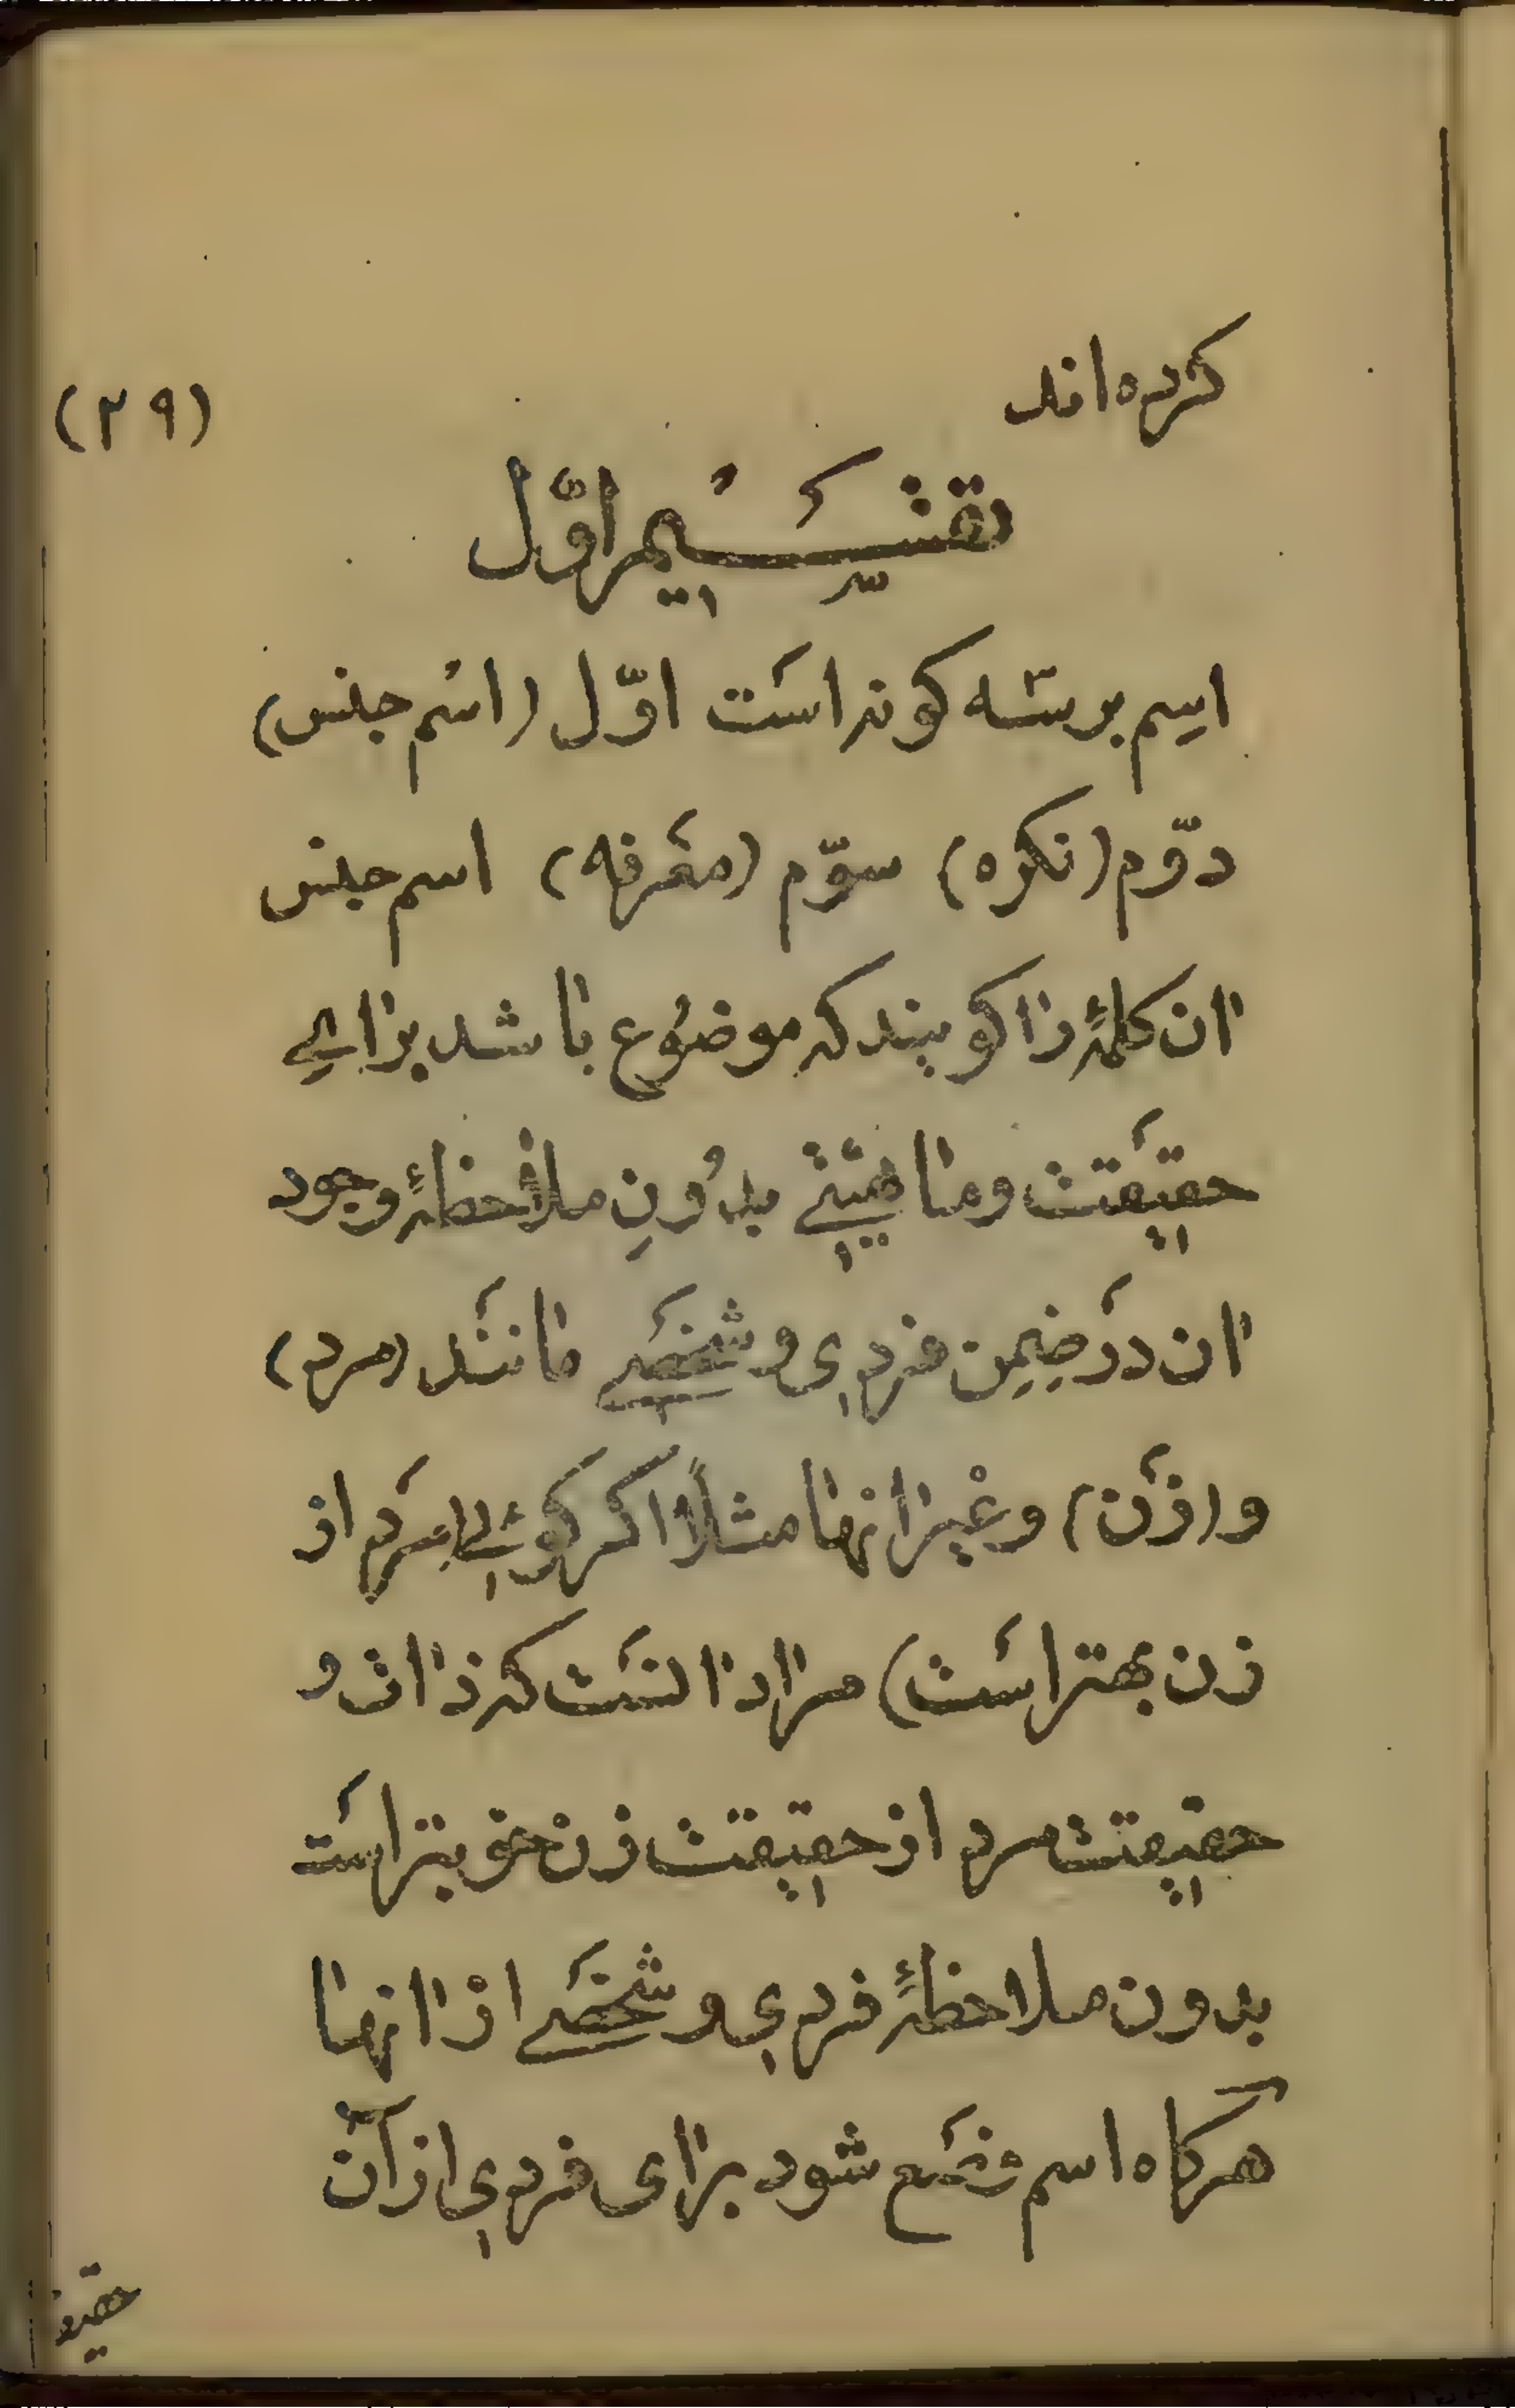 کرده‌اند
(۲۹)
تقسیم اوّل
اسم بر سه کونه است اوّل (اسم جنس)
دوّم (نکره) سوّم (معرفه) اسم جنس
ان کلمهٔ را کویند که موضوع باشد برای
حقیقت و ماهیّتی بدون ملاحظهٔ وجود
ان در ضمن فردی و شخصی مانند (مرد)
و (زن) و غیر انها مثلاً اکر کوئی (مرد از
زن بهتر است) مراد انست که ذات و
حقیقت مرد از حقیقت زن خوبتر است
بدون ملاحظهٔ فردی و شخصی از انها
هرکاه اسم وضع شود برای فردی از آن